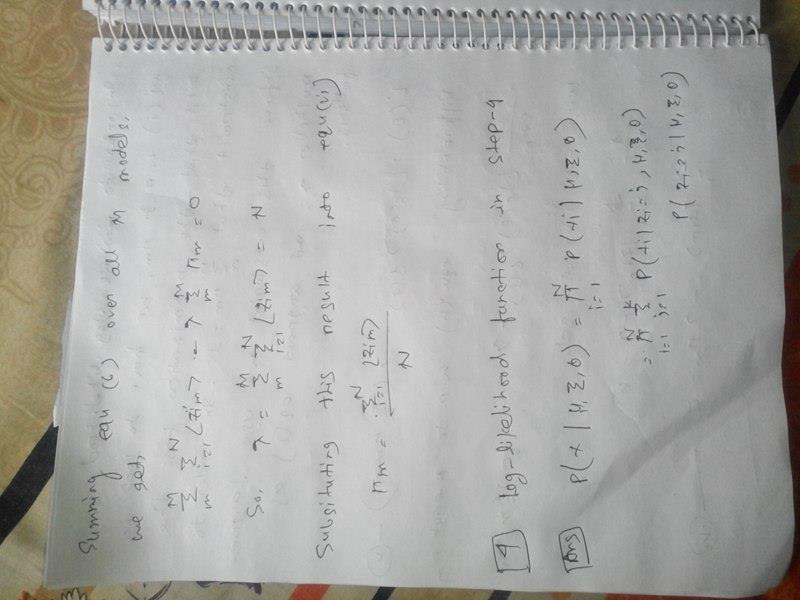 Summing equ (6) over all M models,
we get,
M∑m N∑i=1 ⟨zim⟩ - λ M∑m πm = 0
So, λ = M∑m N∑i=1 ⟨zim⟩ = N
Subsituting this result into equ(vi)
πm = N∑i=1 ⟨zim⟩ / N
4 Log-likelihood function in step-4
Ans P(x | μ, Σ, θ) = N∏i=1 P(xi | μ, Σ, θ)
= N∏i=1 K∑j=1 P(xi | zi=j, μ, Σ, θ)
P(zi=j | μ, Σ, θ)